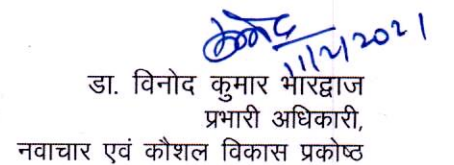 11/2/2021
डा. विनोद कुमार भारद्वाज
प्रभारी अधिकारी,
नवाचार एवं कौशल विकास प्रकोष्ठ